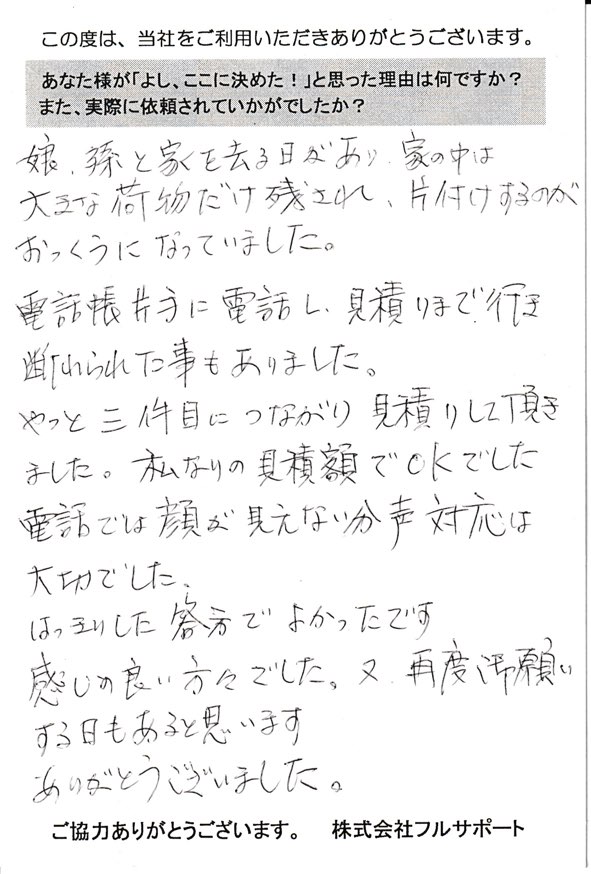 この度は、当社をご利用いただきありがとうございます。
あなた様が「よし、ここに決めた！」と思った理由は何ですか？
また、実際に依頼されていかがでしたか？
娘、孫と家を去る日があり、家の中は
大きな荷物だけ残され、片付けするのが
おっくうになっていました。
電話帳片手に電話し、見積りまで行き
断れられた事もありました。
やっと三件目につながり見積りして頂き
ました。私なりの見積額でOKでした
電話では顔が見えない分声対応は
大切でした、
はっきりした答方でよかったです
感じの良い方々でした。又、再度お願い
する日もあると思います
ありがとうございました。
ご協力ありがとうございます。　株式会社フルサポート